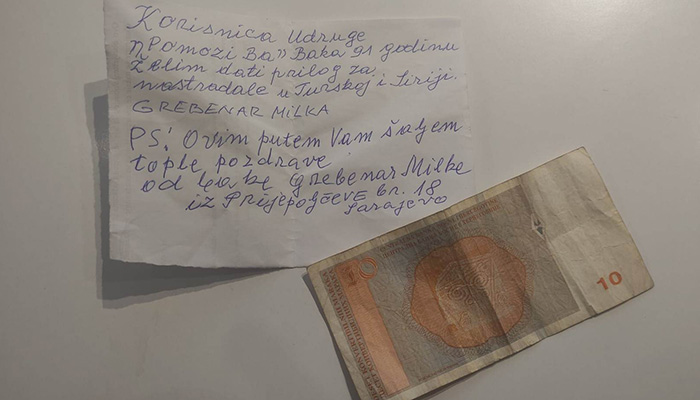 Korisnica Udruge
"Pomozi Ba" Baka 91 godinu
želim dati prilog za
nastradale u Turskoj i Siriji.
GREBENAR MILKA
PS! Ovim putem Vam šaljem
tople pozdrave
od bake Grebenar Milke
iz Prijepoljčeve br. 18
Sarajevo
10
10